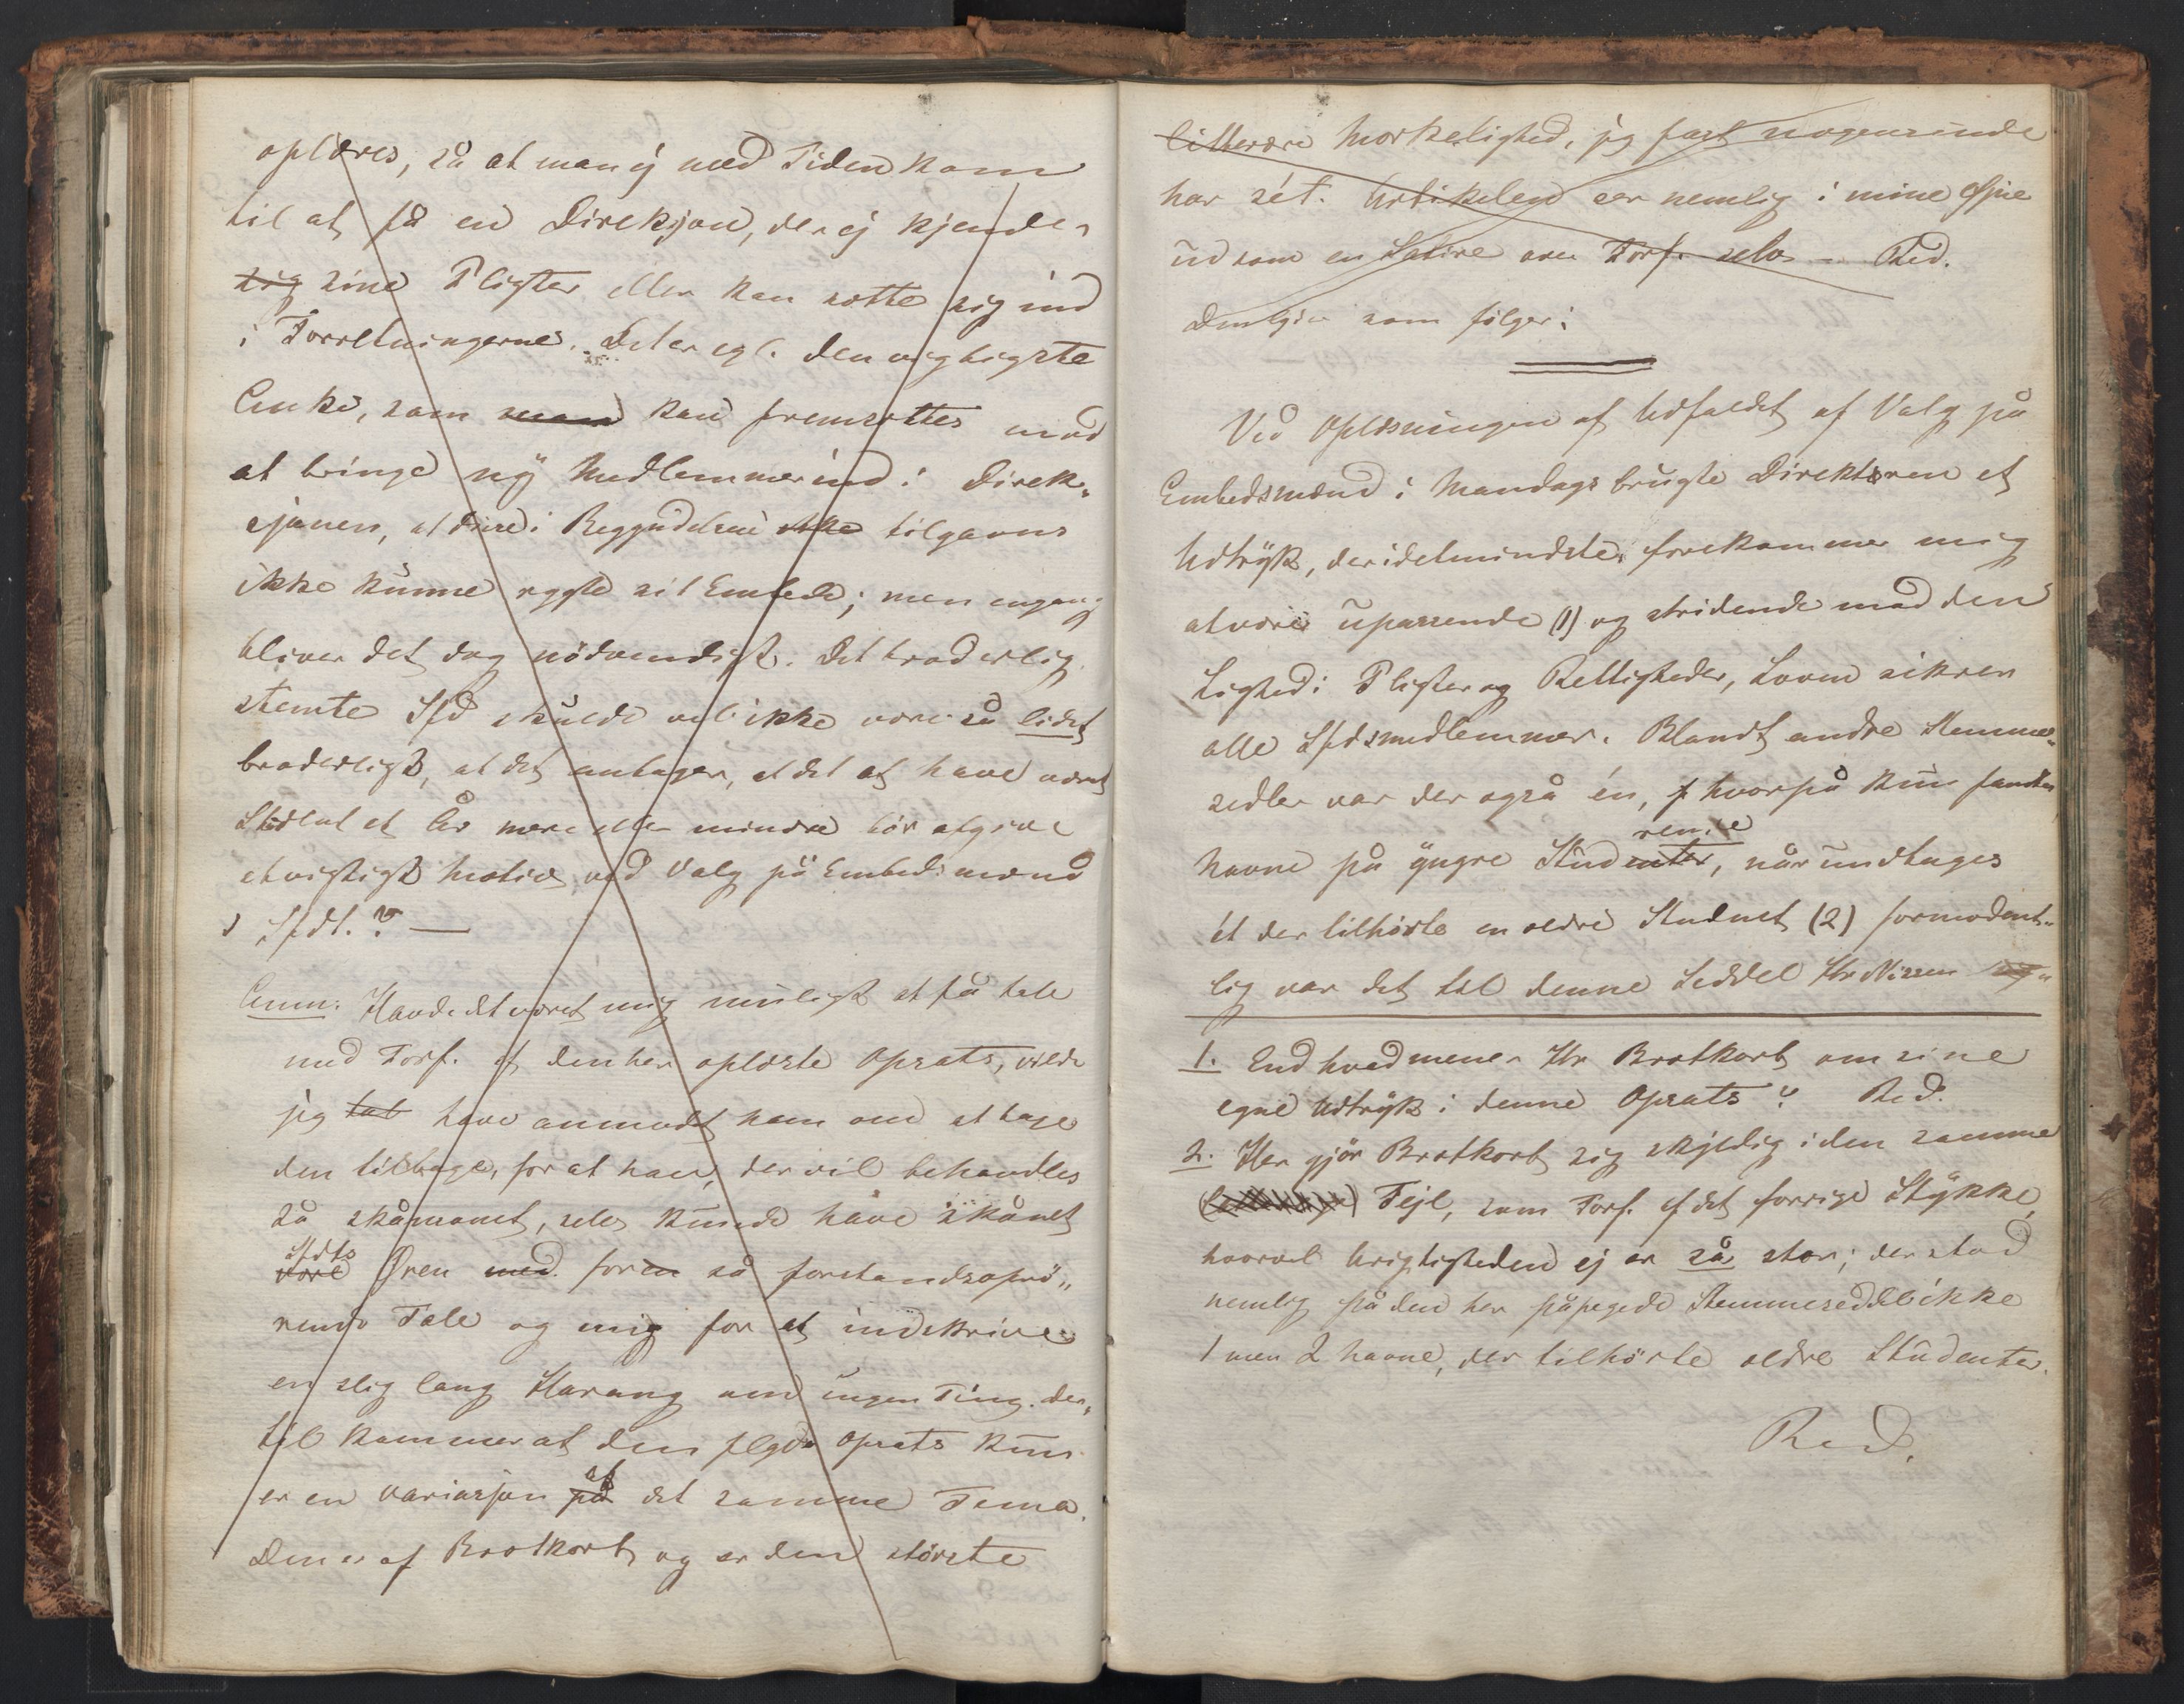 oplæres, så at man ej med Tiden kom
til at få en Direksjon, der ej kjender
sig sine Pligter eller kan sætte sig ind
i Forretningerne. Det er egl. den vigtigste
Anke, som man kan fremsættes mod
at bringe ny Medlemmer ind i Direk-
sjonen, at disse i Begyndelsen ikke tilgavns
ikke kunne røgte sit Embede; men engang
bliver det dog nödvendigt. Det broderlig
stemte Sfd skulde vel ikke være så lidet
broderligt, at det antager, at det at have været
Student et År mere eller mindre bör afgive
et vigtigt Motiv ved Valg på Embedsmænd
i Sfdt.? —
Anm: Havde det været mig muligt at få tale
med Forf. af den her oplæste Opsats, vilde
jeg have anmodt ham om at tage
den tilbage, for at han, der vil behandles
så skånsomt, selv kunde have skånet
Sfdts
vore Øren med for en så forstandsoprö-
rende Tale og mig for at indskrive
en slig lang Harang om ingen Ting. der-
til kommer at den flgde Opsats kun
af
er en Variasjon på det samme Tema.
Den er af Brotkorb og er den störste
litterære Mærkelighed, jeg fast nogensinde
har sét. Artikelen ser nemlig i mine Øjne
ud som en Satire over Forf. selv – Red.
Den lyder som fölger:
Ved Oplæsningen af Udfaldet af Valg på
Embedsmænd i Mandags brugte Direktören et
Udtryk, der i detmindste forekommer mig
at være upassende (1) og stridende mod den
Lighed i Pligter og Rettigheder, Loven sikrer
alle Sfdsmedlemmer. Blandt andre Stemme-
sedler var der også én, hvorpå kun fandtes
rende
Navne på yngre Studenter, når undtages
ét der tilhörte en ældre Student (2) formodent-
lig var det til denne Seddel Hr Nissen
1. End hvad mener Hr Brotkorb om sine
egne Udtryk i denne Opsats? Red.
2. Her gjör Brotkorb sig skyldig i den samme
Fejl, som Forf. af det forrige Stykke,
hvorvel Urigtigheden ej er så stor; der stod
nemlig på den her påpegede Stemmeseddel ikke
1 men 2 Navne, der tilhörte ældre Studenter.
Red.